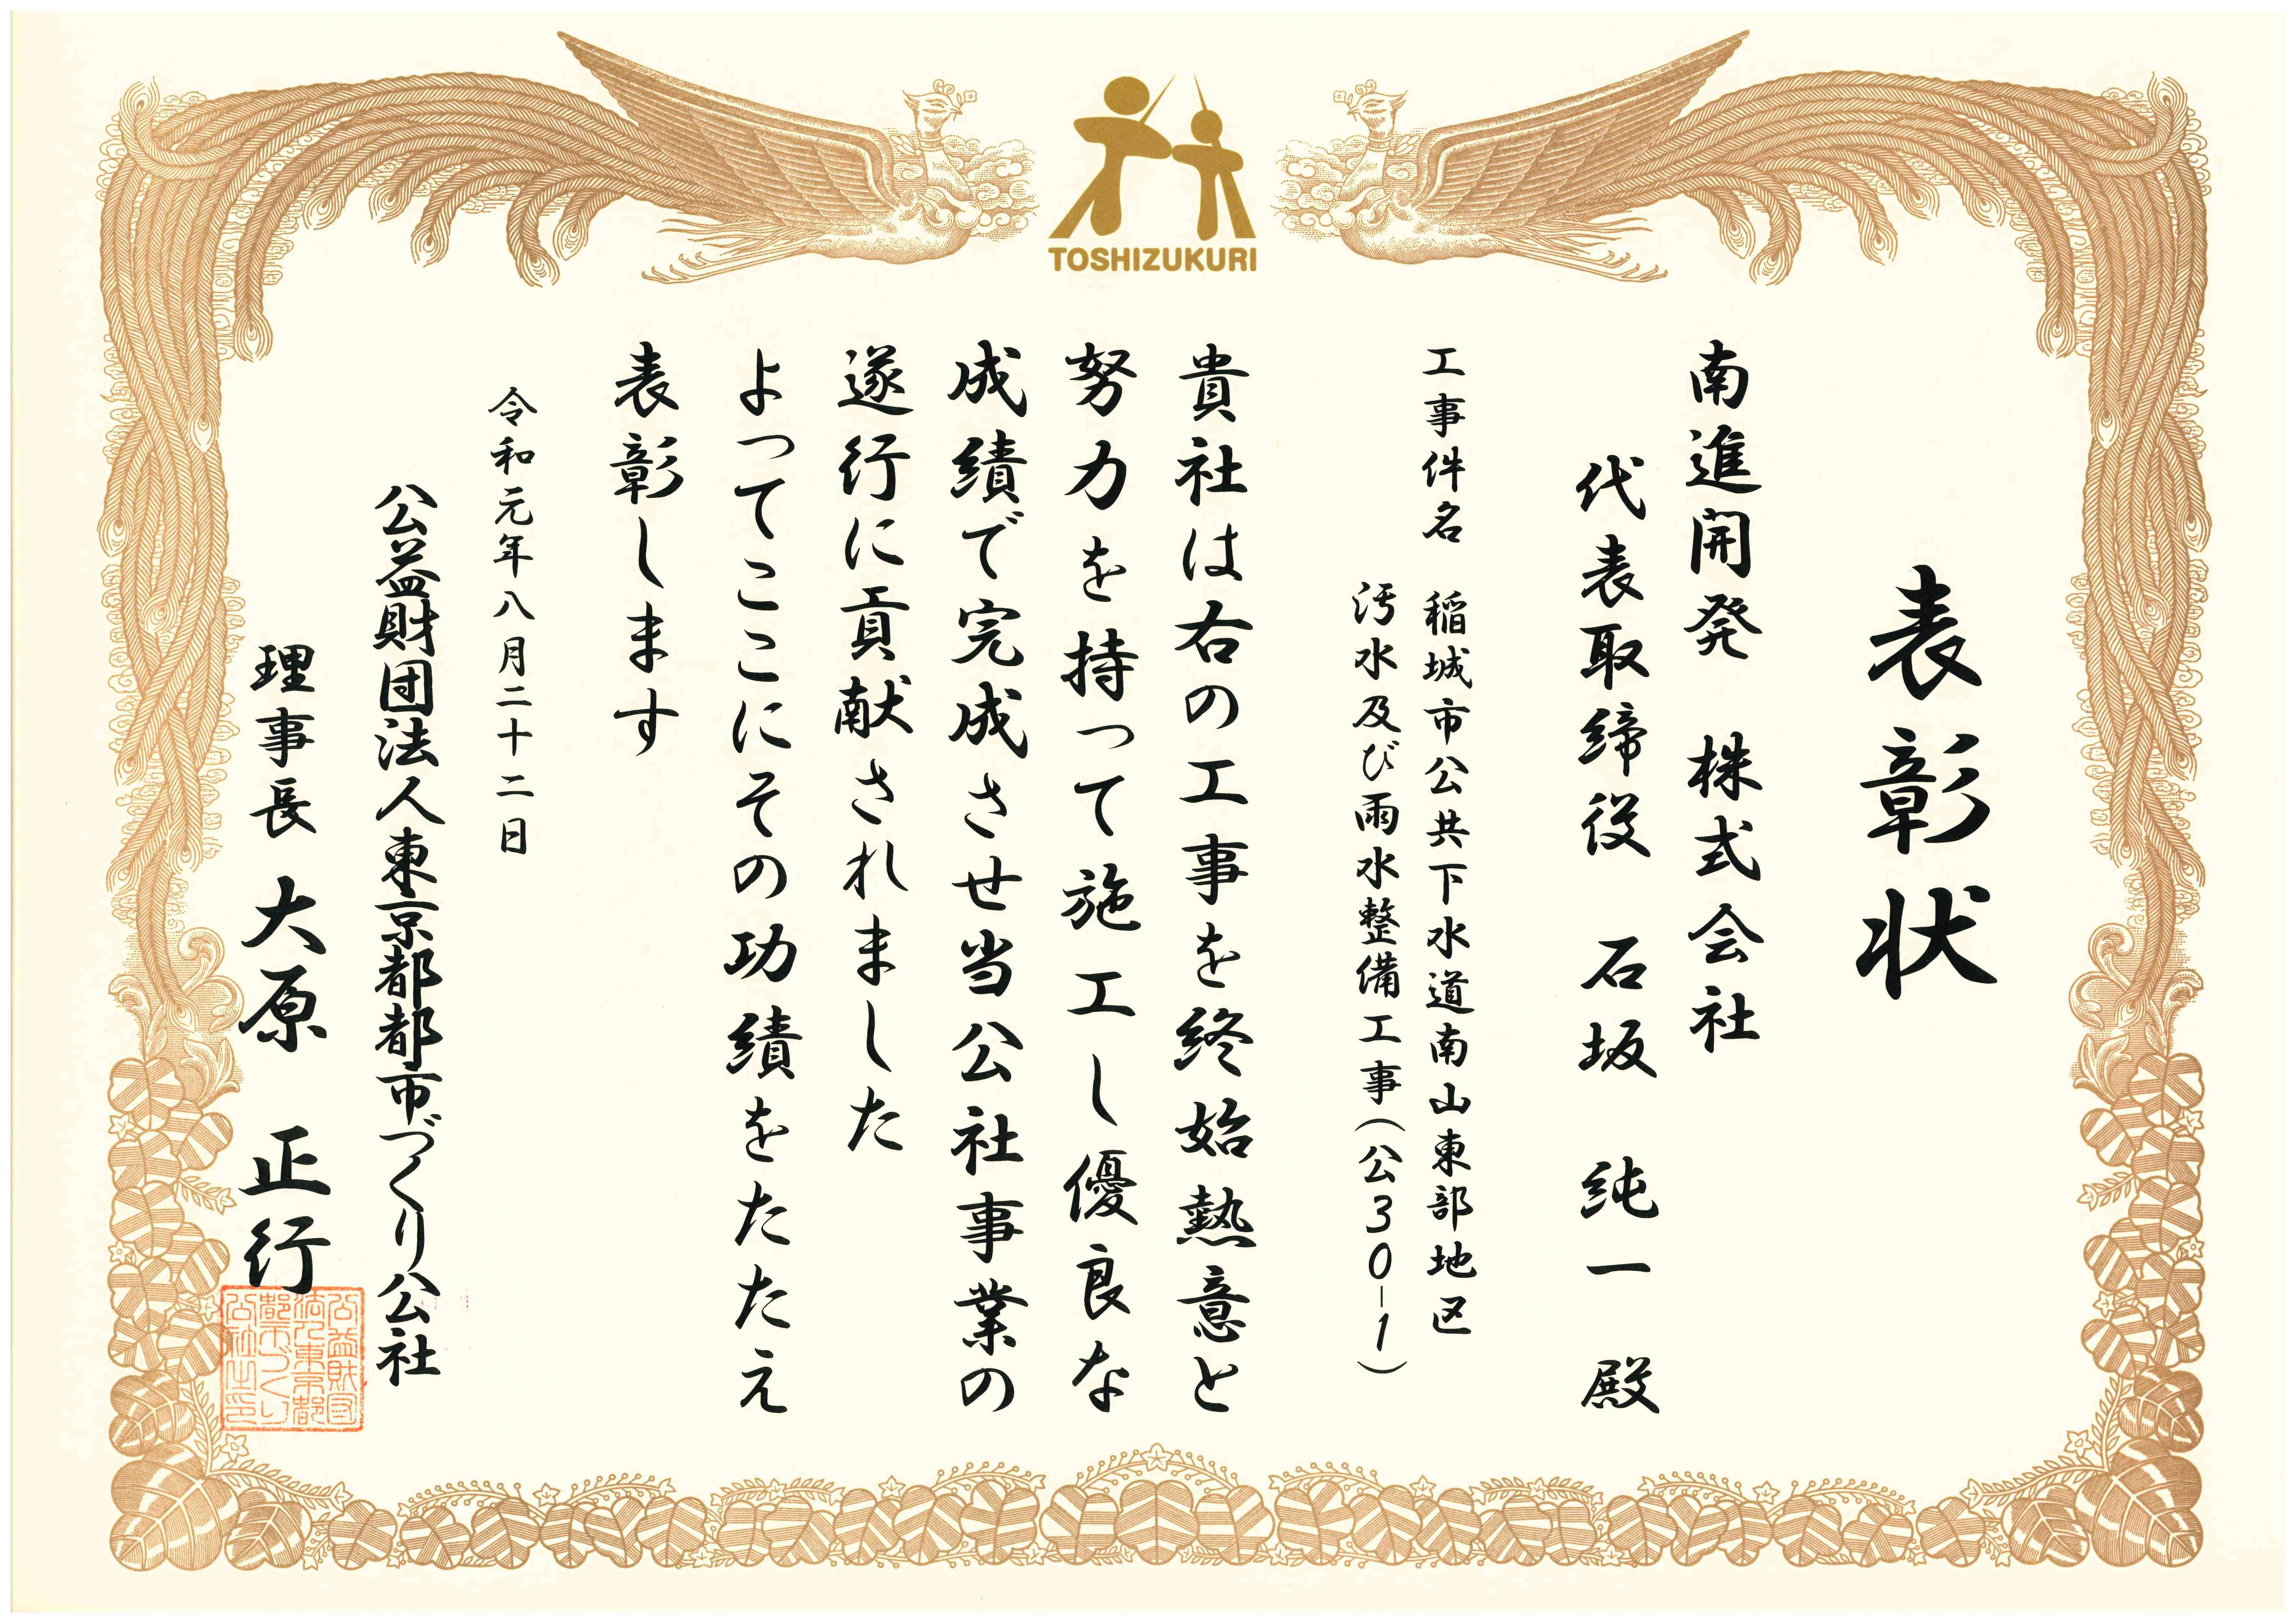 TOSHIZUKURI
表彰状
南進開発 株式会社
代表取締役 石坂 純一 殿
工事件名 稲城市公共下水道南山東部地区
汚水及び雨水整備工事(公30-1)
貴社は右の工事を終始熱意と
努力を持って施工し優良な
成績で完成させ当公社事業の
遂行に貢献されました
よってここにその功績をたたえ
表彰します
令和元年八月二十二日
公益財団法人東京都都市づくり公社
理事長 大原 正行
公益財団
法人東京都
都市づくり
公社之印